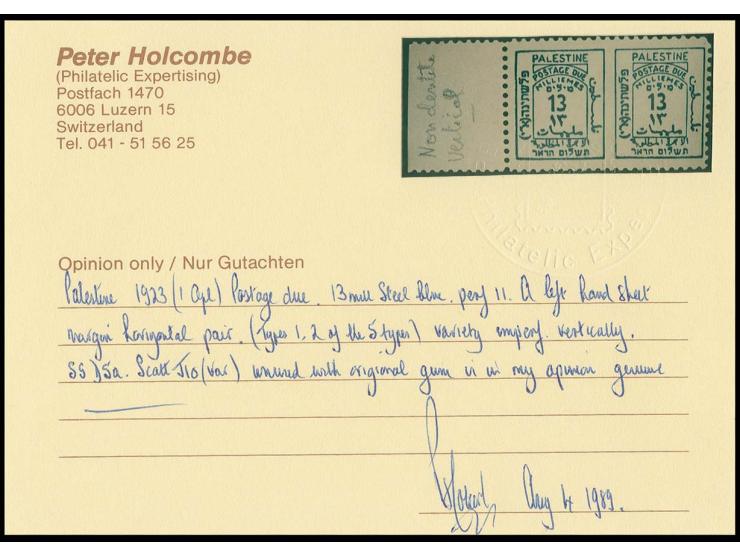 Peter Holcombe
(Philatelic Expertising)
Postfach 1470
6006 Luzern 15
Switzerland
Tel. 041 - 51 56 25
Non dentelé
vertical
PALESTINE
POSTAGE DUE
MILLIEMES
13
١٣
מליבאת
PALESTINE
POSTAGE DUE
MILLIEMES
13
١٣
תשלום הדאר
תשלום הדאר
Philatelic Expe
Opinion only / Nur Gutachten
Palestine 1923 (1 Apl) Postage due. 13 mill Steel Blue. perf 11. A left hand sheet
margin horizontal pair. (Types 1, 2 of the 5 types) variety imperf. vertically.
SG D5a. Scott J10 (var) unused with original gum is in my opinion genuine
Aug 4 1989.